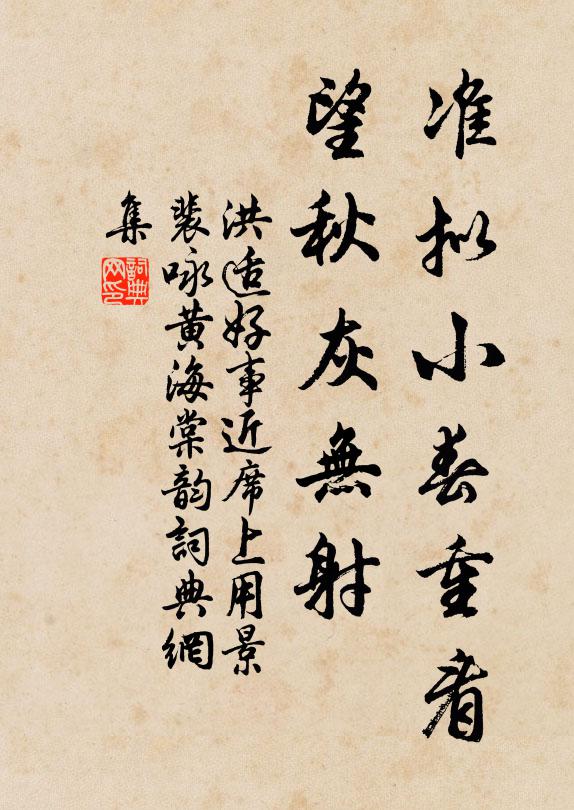 准拟小春重看
望秋灰無射
洪适好事近席上用景
裴咏黄海棠韵詞典網
集
詞典网印